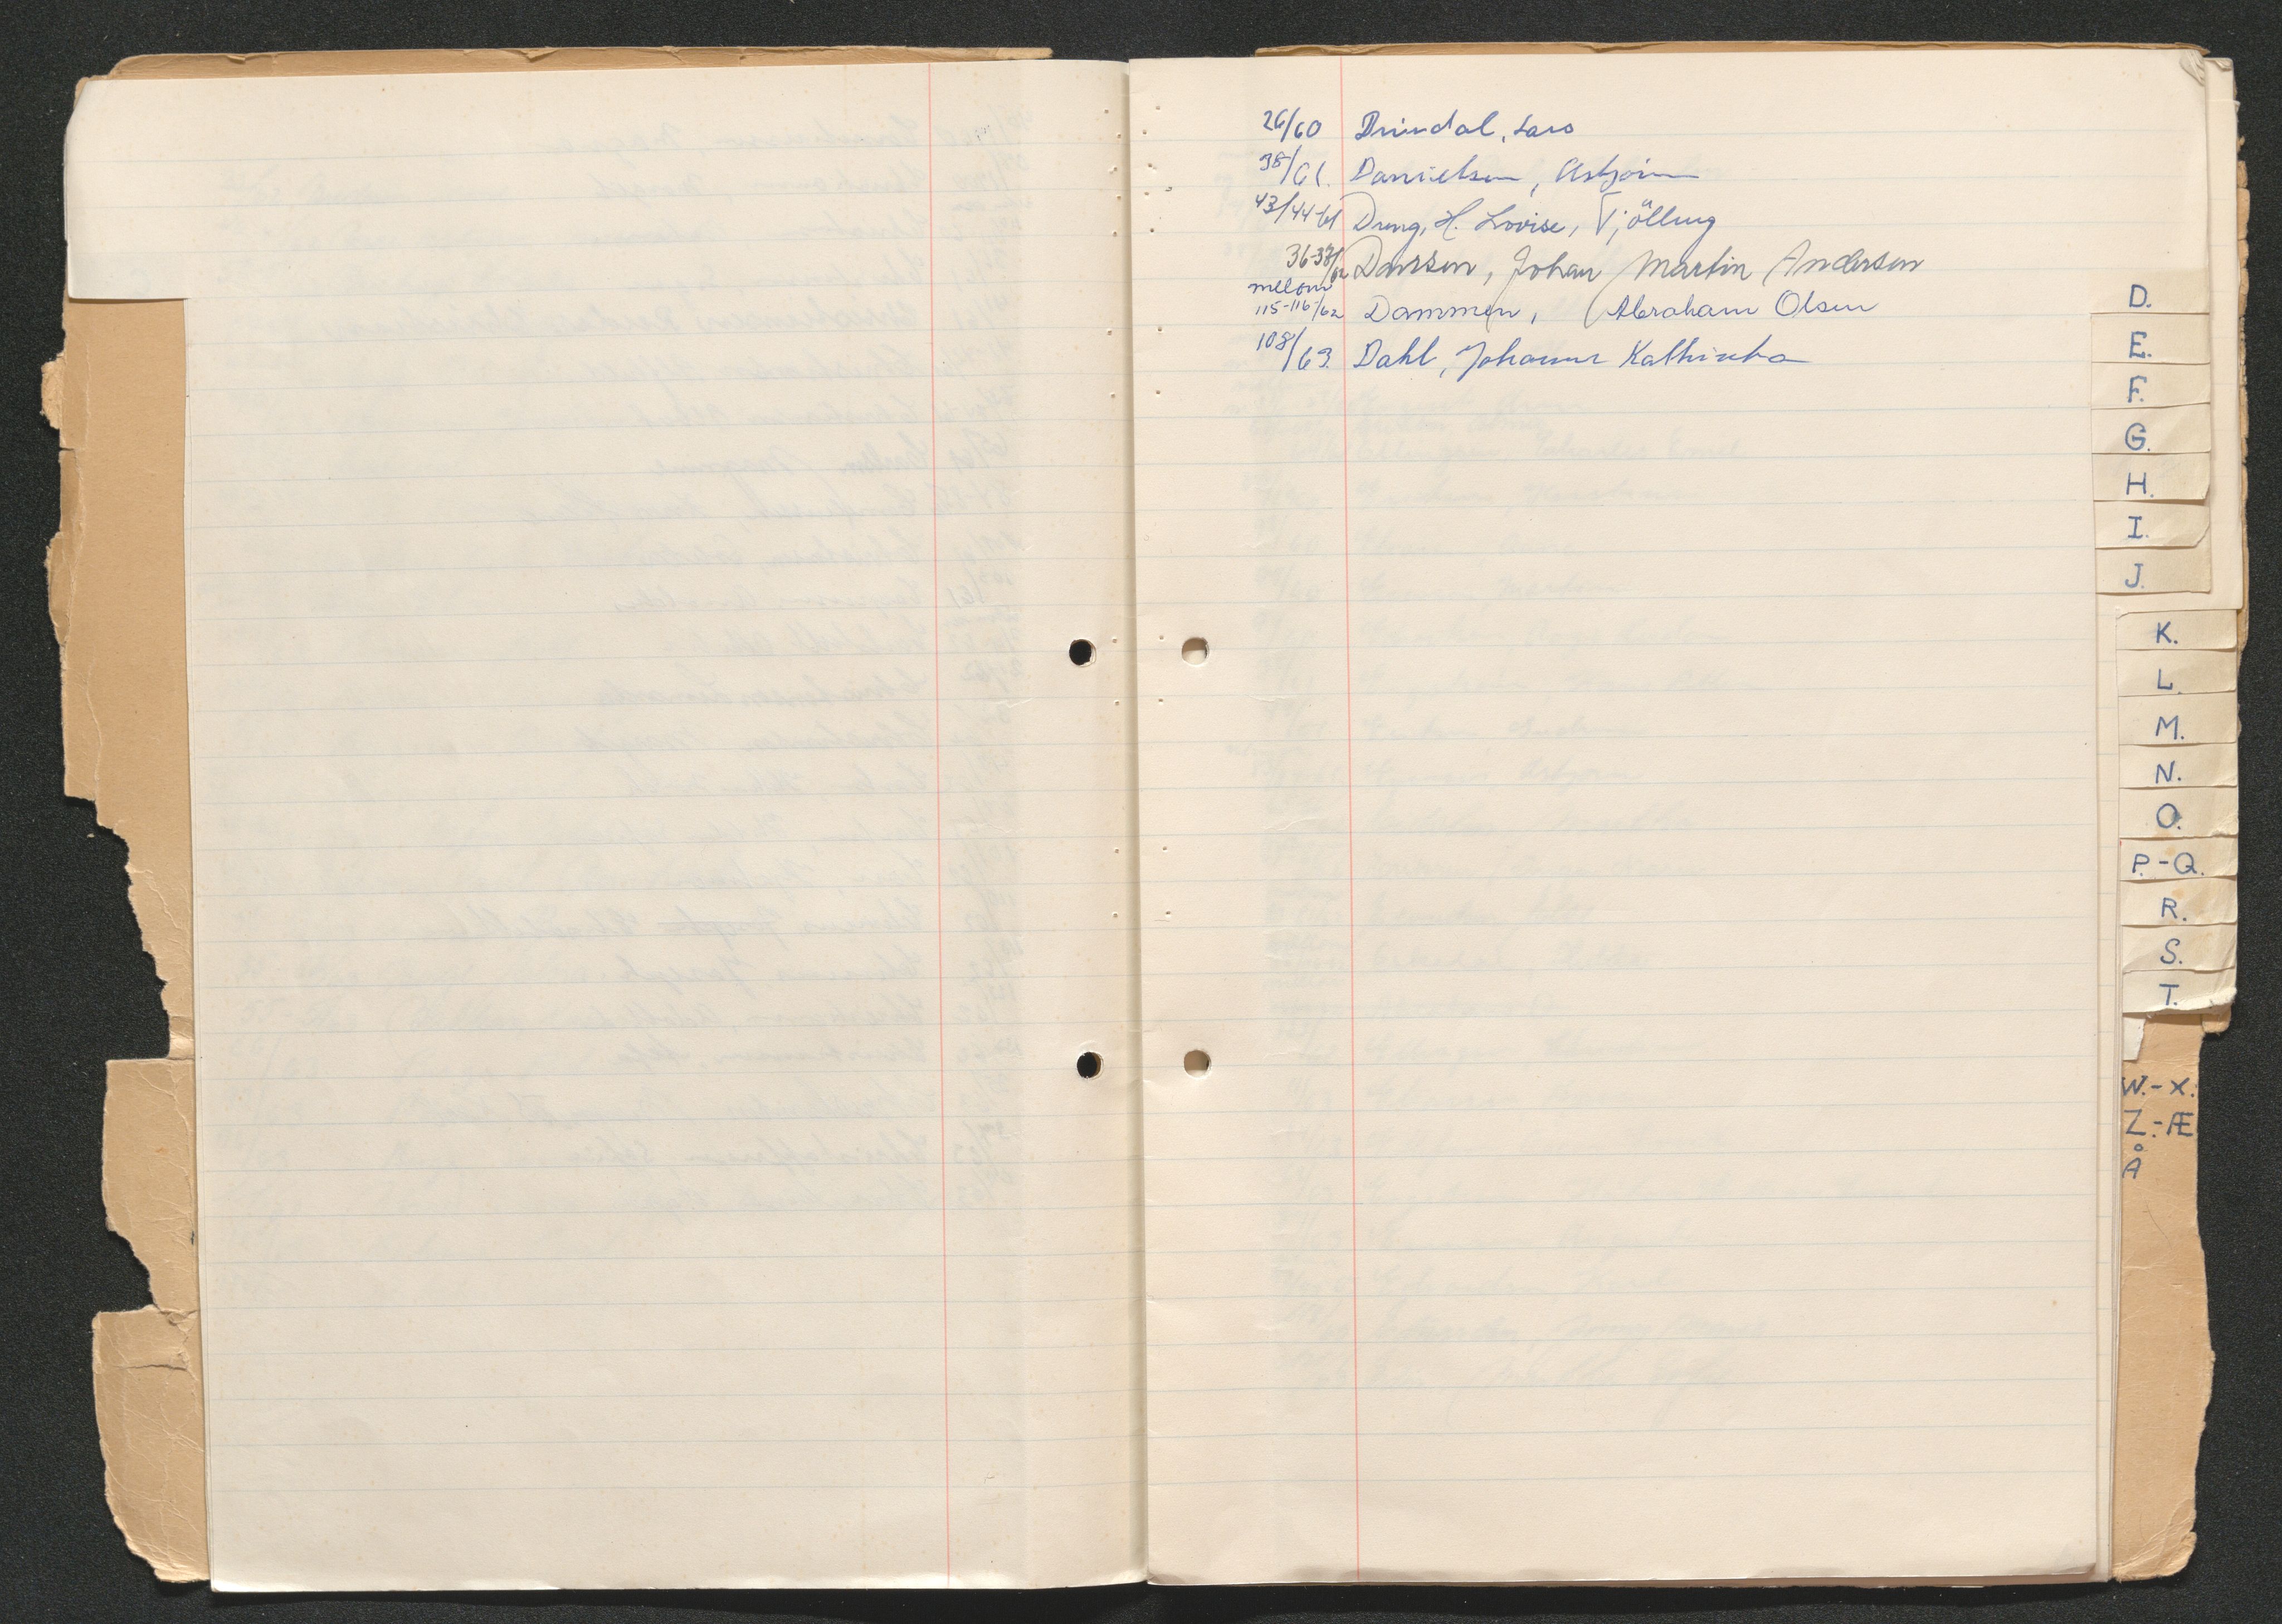 26/60 Drindal, Lars
38/61. Danielsen, Asbjørn
43/44-61 Dreng, H. Lovise, Tjölling
36-37/62 Danssen, Johan Martin Andersen
mellom
115-116/62 Dammen, Abraham Olsen
108/63. Dahl, Johanne Kathinka
D.
E.
F.
G.
H.
I.
J.
K.
L.
M.
N.
O.
P.-Q.
R.
S.
T.
W.-X.
Z.-Æ
Å